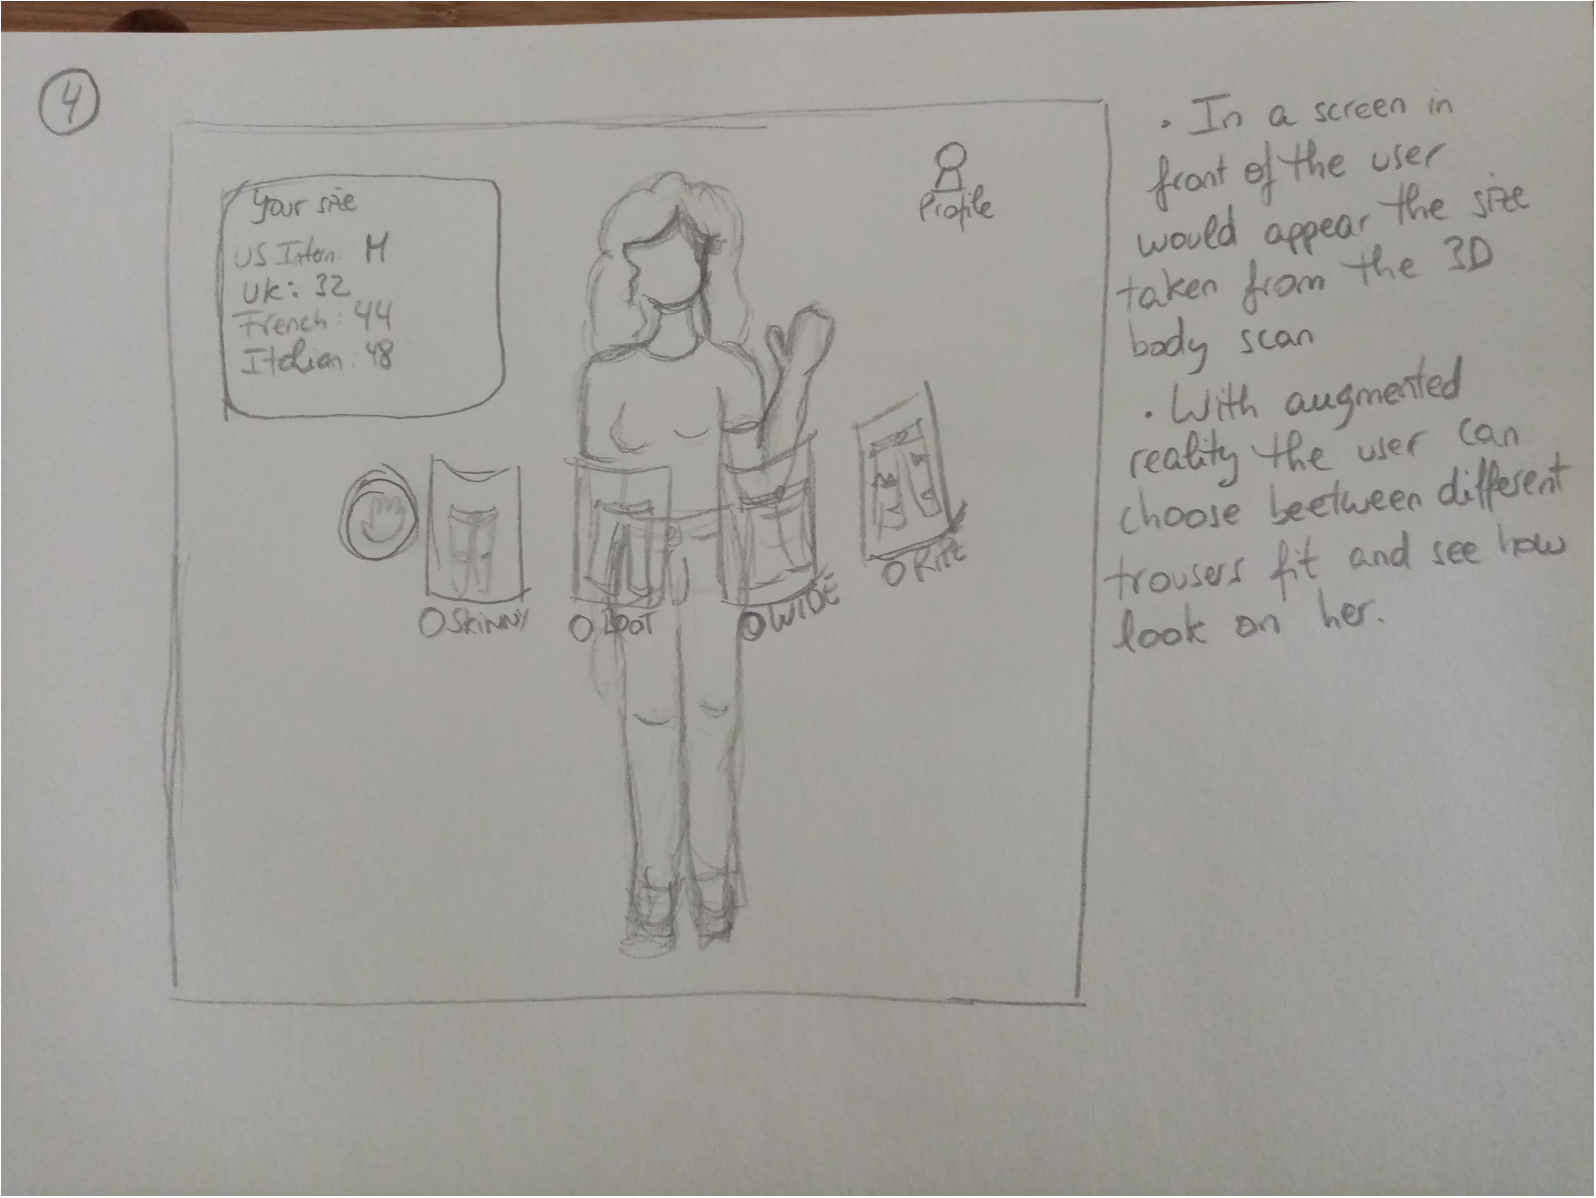 4
Your size
US Intern. M
UK: 32
French: 44
Italian: 48
Profile
O SKINNY
O BOOT
O WIDE
O
• In a screen in
front of the user
would appear the size
taken from the 3D
body scan
• With augmented
reality the user can
choose beetween different
trousers fit and see how
look on her.